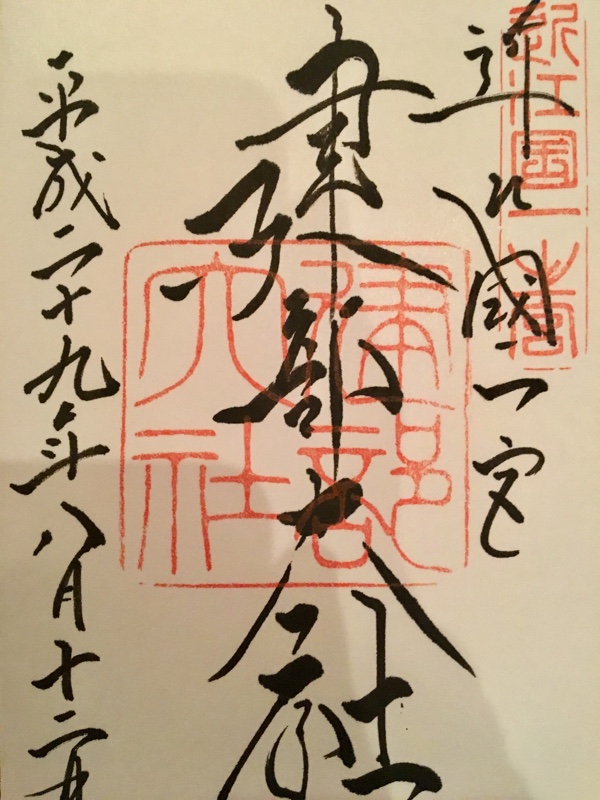 近江國一宮
建部大社
平成二十九年八月十二日
近江國一之宮
建部大社